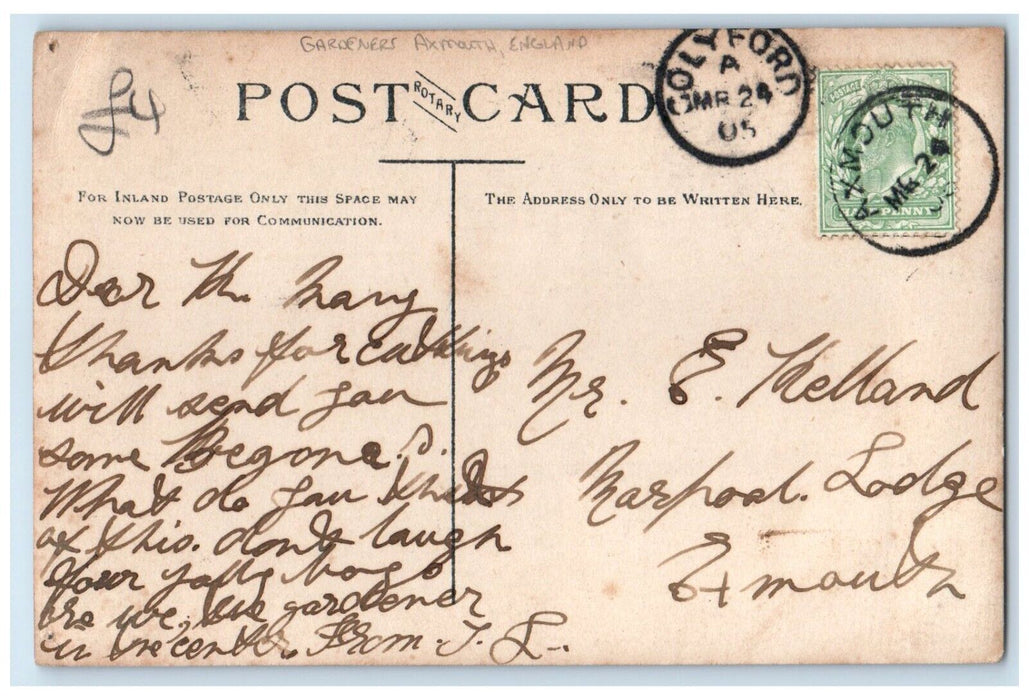 GARDENERS AXMOUTH, ENGLAND
£4
POST CARD
ROTARY
COLYFORD
A
MR 24
05
AXMOUTH
MR 24
POSTAGE
HALFPENNY
FOR INLAND POSTAGE ONLY THIS SPACE MAY
NOW BE USED FOR COMMUNICATION.
THE ADDRESS ONLY TO BE WRITTEN HERE.
Dear
thanks for cuttings
will send you
some Begone.
What do you think
of this. don't laugh
four jolly
are we, the gardener
in the center, From. J. L.
Mr. E. Kelland
Lodge
Exmouth